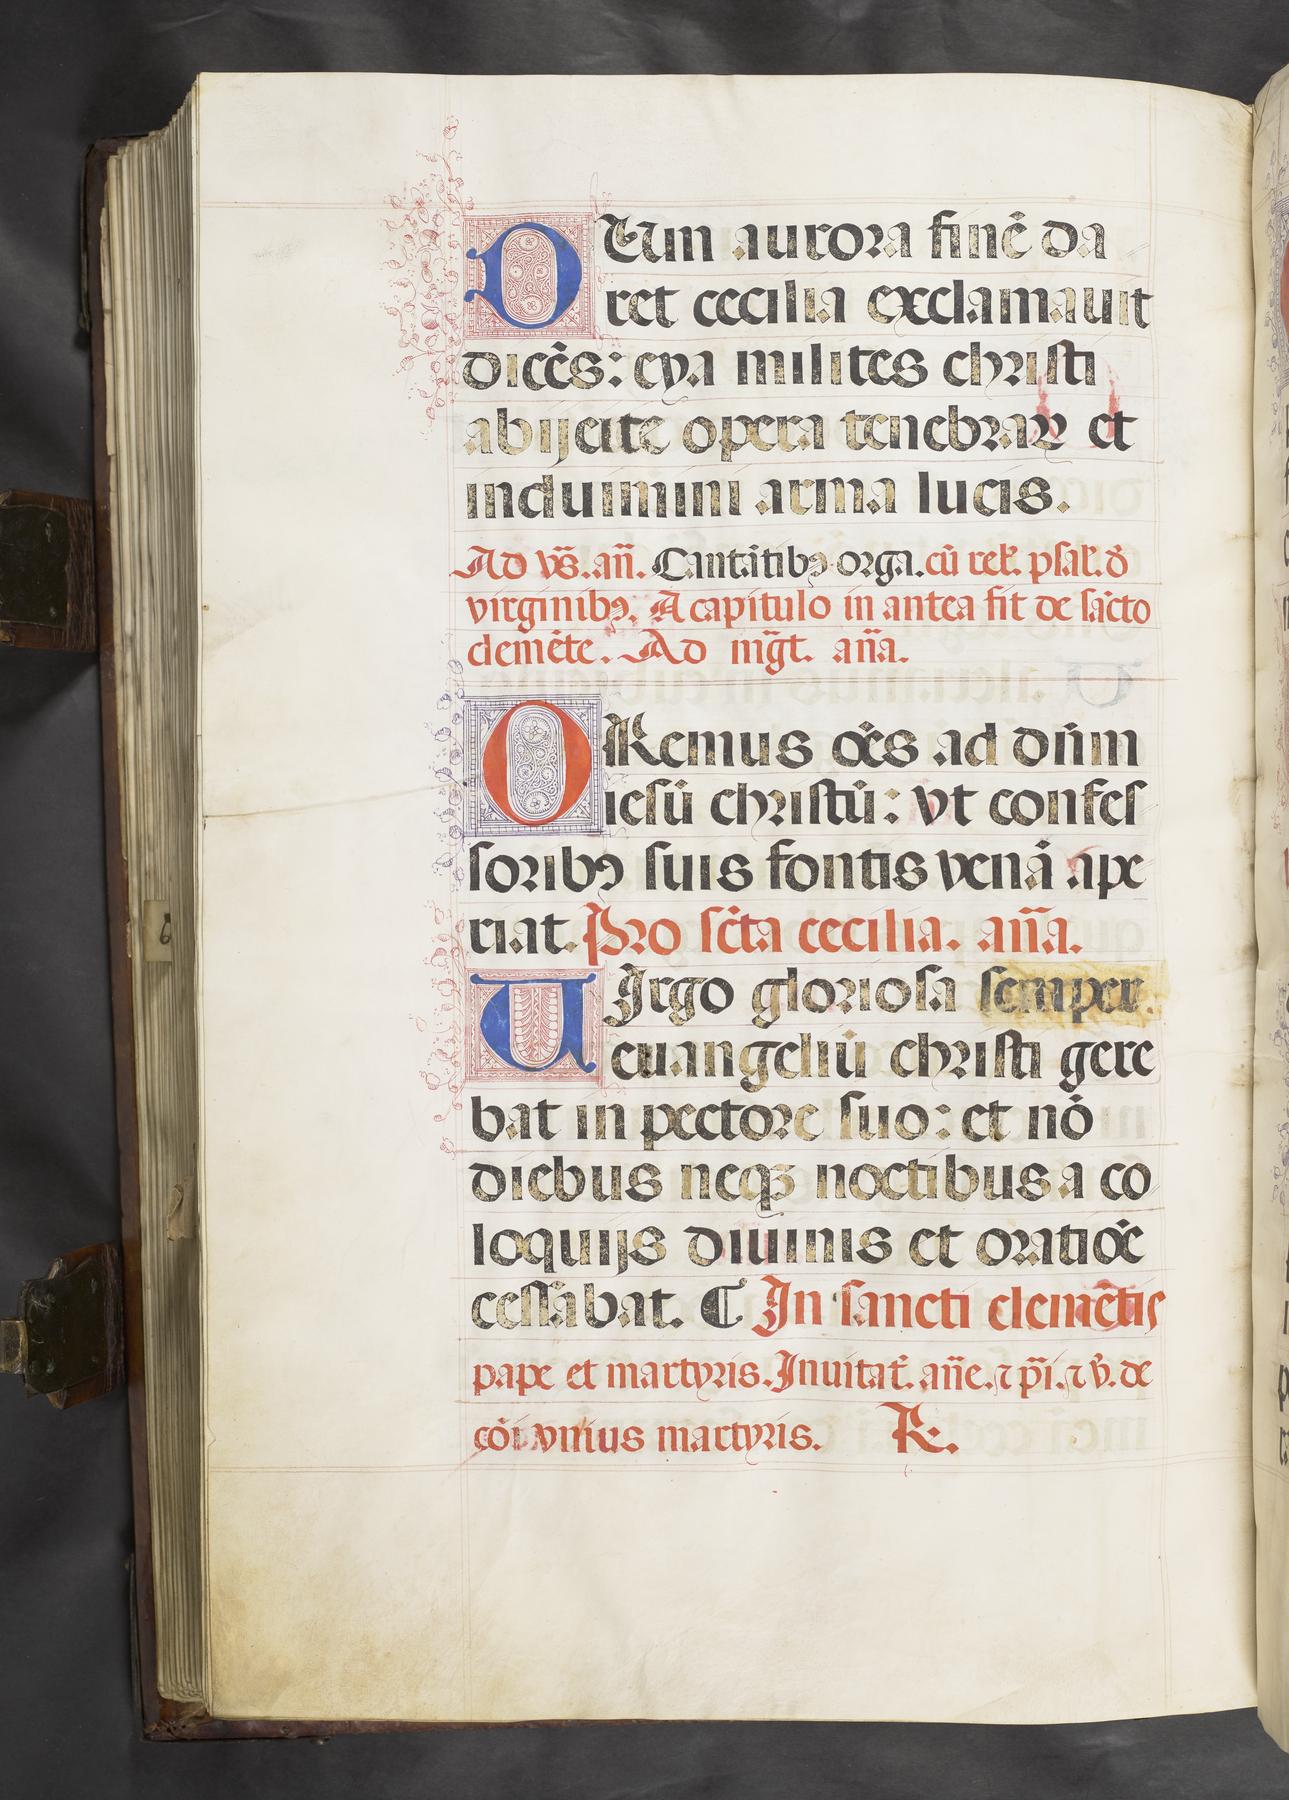 DUm aurora finē da
ret cecilia exclamauit
dicēs: eya milites christi
abijcite opera tenebraꝝ et
induimini arma lucis.
Ad vs̄. an̄. Cantātibꝰ orga. cū rel̄. psal. đ
virginibꝰ. A capitulo in antea fit de sācto
clemēte. Ad mḡt. an̄a.
ORemus oēs ad dn̄m
iesū christū: vt confes
soribꝰ suis fontis venā ape
riat. Pro sc̄ta cecilia. an̄a.
UIrgo gloriosa semper
euangeliū christi gere
bat in pectore suo: et nō
diebus neqꝫ noctibus a co
loquijs diuinis et oratiōe
cessabat. ₵ In sancti clemētis
pape et martyris. Inuitat̄. an̄e. ⁊ p̄i. ⁊ v̄. de
cōi vnius martyris. R.
6